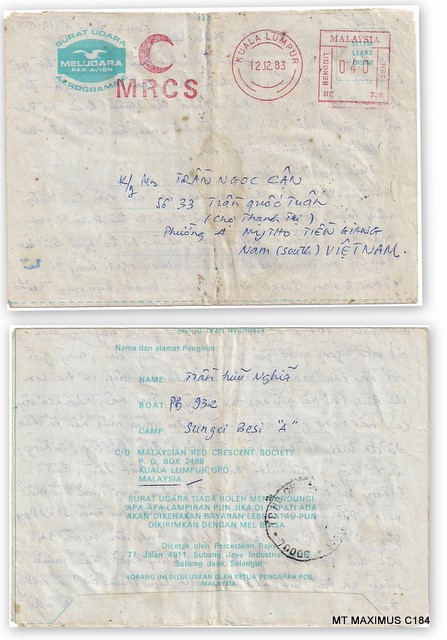 SURAT UDARA
MELUDARA
PAR AVION
AEROGRAMME
MRCS
KUALA LUMPUR
12.12.83
MALAYSIA
RINGGIT
SEN
040
K/g Mr TRẦN NGỌC CẬN
Số 33 Trần quốc Tuấn
(Chợ Thanh Trì)
Phường 4 MỹTHO TIỀN GIANG
Nam (South) VIỆTNAM.
Nama dan alamat Pengirim:
NAME: Trần hữu Nghĩa
BOAT: PB 932
CAMP: Sungei Besi "A"
C/O MALAYSIAN RED CRESCENT SOCIETY
P. O. BOX 2488
KUALA LUMPUR GPO
MALAYSIA
SURAT UDARA TIADA BOLEH MENGANDUNGI
APA APA LAMPIRAN PUN JIKA DIDAPATI ADA
AKAN DIKENAKAN BAYARAN LEBIH ATAU PUN
DIKIRIMKAN DENGAN MEL BIASA
Dicetak oleh Percetakan
77, Jalan 4911, Subang Jaya Industrial
Subang Jaya, Selangor.
BORANG INI DILULUSKAN OLEH KETUA PENGARAH POS
MALAYSIA
MT MAXIMUS C184